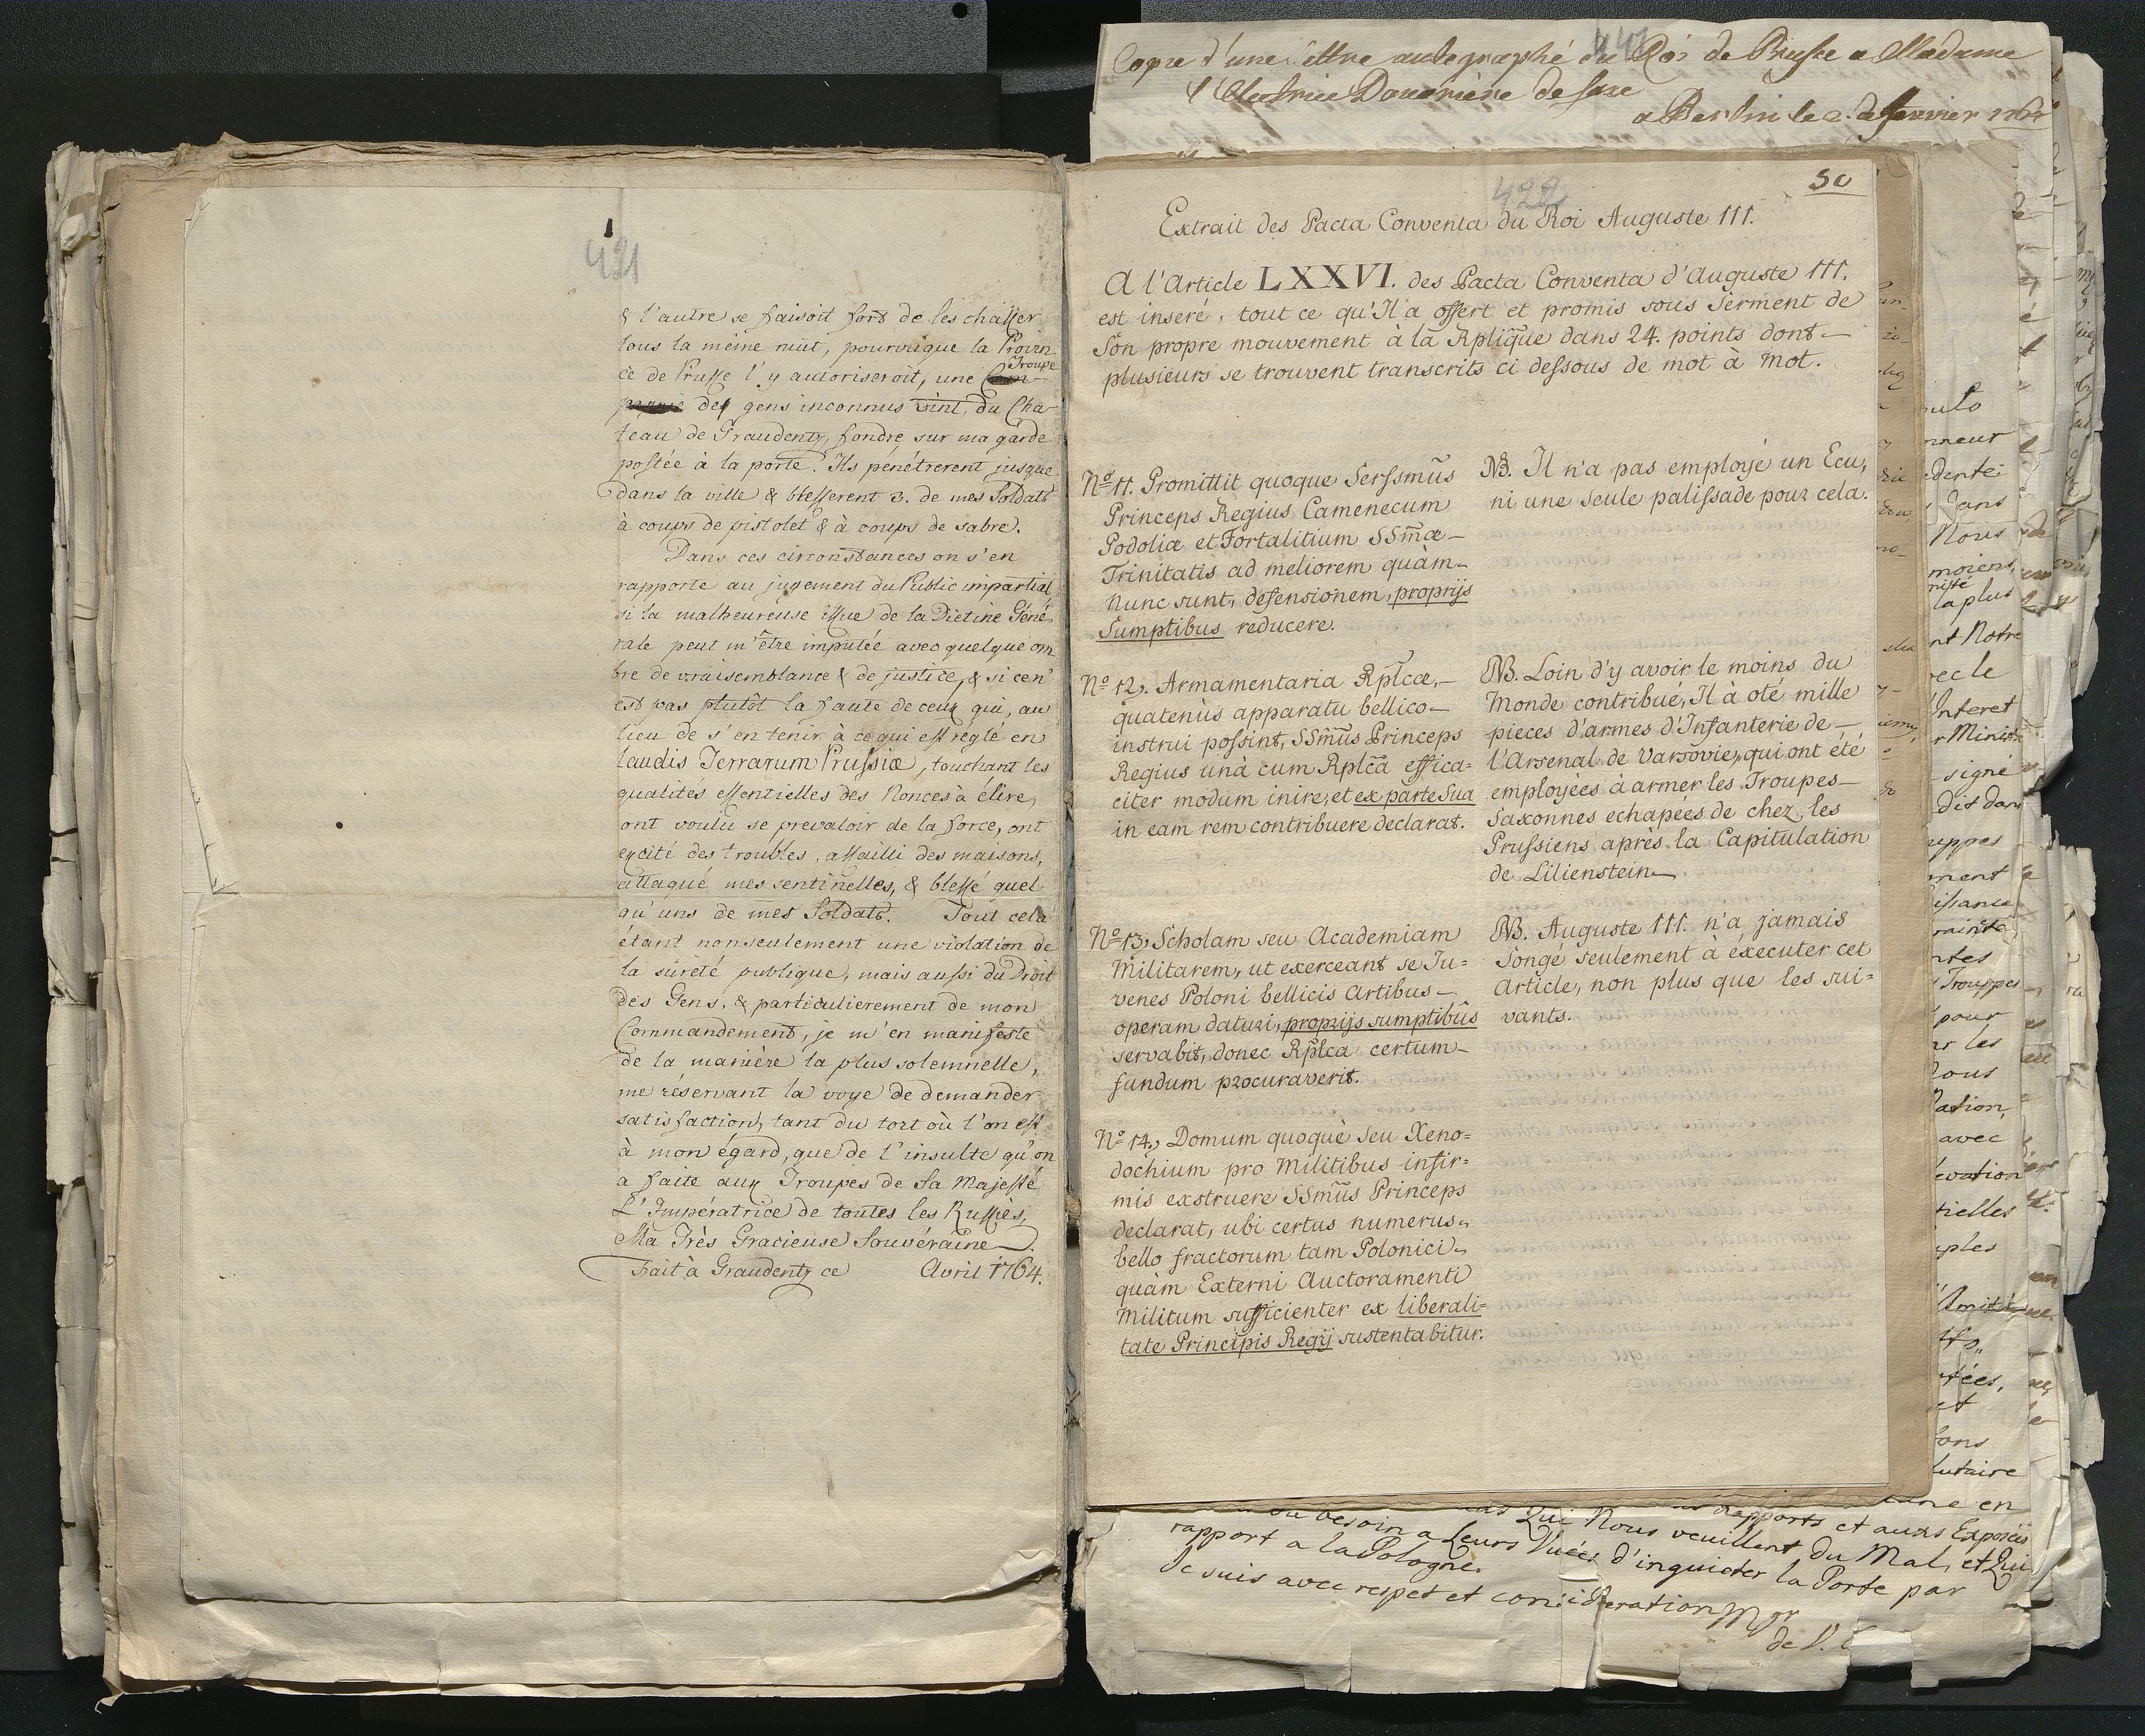 421
& l'autre se faisoit fort de les chasser
tous la même nuit, pourvuque la Provin
ce de Prusse l'y autoriseroit, une Troupe
des gens inconnus vint, du Cha-
teau de Graudentz, fondre sur ma garde
postée à la porte. Ils pénétrerent jusque
dans la ville & blesserent 3. de mes Soldats
à coups de pistolet & à coups de sabre.
Dans ces circonstances on s'en
rapporte au jugement du Public impartial
si la malheureuse issue de la Dietine Géné
rale peut m'être imputée avec quelque om
bre de vraisemblance & de justice, & si ce n'
est pas plutôt la faute de ceux qui, au
lieu de s'en tenir à ce qui est reglé en
laudis Terrarum Prussiæ, touchant les
qualités essentielles des Nonces à élire,
ont voulu se prevaloir de la force, ont
excité des troubles, assailli des maisons,
attaqué mes sentinelles, & blessé quel
qu'uns de mes Soldats. Tout cela
étant nonseulement une violation de
la sûreté publique, mais aussi du Droit
des Gens, & particulierement de mon
Commandement, je m'en manifeste
de la manière la plus solemnelle,
me réservant la voye de demander
satisfaction, tant du tort où l'on est
à mon égard, que de l'insulte qu'on
a faite aux Troupes de Sa Majesté
L'Impératrice de toutes les Russies,
Ma Très Gracieuse Souvéraine.
Fait à Graudentz ce Avril 1764.
Copie d'une lettre autographé du Roi de Prusse a Madame
l'Electrice Douarière de Saxe
a Berlin le 2. de Janvier
422
50
Extrait des Pacta Conventa du Roi Auguste III.
A l'Article LXXVI. des Pacta Conventa d'Auguste III.
est inseré, tout ce qu'Il a offert et promis sous Serment de
Son propre mouvement à la Rplique dans 24. points dont
plusieurs se trouvent transcrits ci dessous de mot à mot.
No 11. Promittit quoque Serssmus
Princeps Regius Camenecum
Podoliæ et Fortalitium SSmæ
Trinitatis ad meliorem quàm
nunc sunt, defensionem, proprijs
Sumptibus reducere.
NB. Il n'a pas employé un Ecu,
ni une seule palissade pour cela.
No 12. Armamentaria Rplcæ,
quatenùs apparatu bellico
instrui possint, SSmus Princeps
Regius unà cum Rplcâ effica=
citer modum inire, et ex parte Sua
in eam rem contribuere declarat.
NB. Loin d'y avoir le moins du
Monde contribué, Il à oté mille
pieces d'armes d'Infanterie de
l'Arsenal de Varsovie, qui ont été
employées à armer les Troupes
Saxonnes echapées de chez les
Prussiens après la Capitulation
de Lilienstein
No 13. Scholam seu Academiam
Militarem, ut exerceant se Ju=
venes Poloni bellicis Artibus
operam daturi, proprijs sumptibus
servabit, donec Rplca certum
fundum procuraverit.
NB. Auguste III. n'a jamais
songé seulement à éxecuter cet
Article, non plus que les sui=
vants.
No 14. Domum quoquè seu Xeno=
dochium pro Militibus infir=
mis exstruere SSmus Princeps
declarat, ubi certus numerus
bello fractorum tam Polonici
quàm Externi Auctoramenti
Militum sufficienter ex liberali=
tate Principis Regij sustentabitur.
nneur
dans
Nous
moiens,
la plus
nt Notre
Interet
signé
dit dans
Troupes
pour
avec
rapports et aux Exposés
ou besoin a Leurs Vuées Qui Nous veuillent du Mal, et Qui
rapport a la Pologne. d'inquieter la Porte par
Je suis avec respet et consideration Mgr
de V.